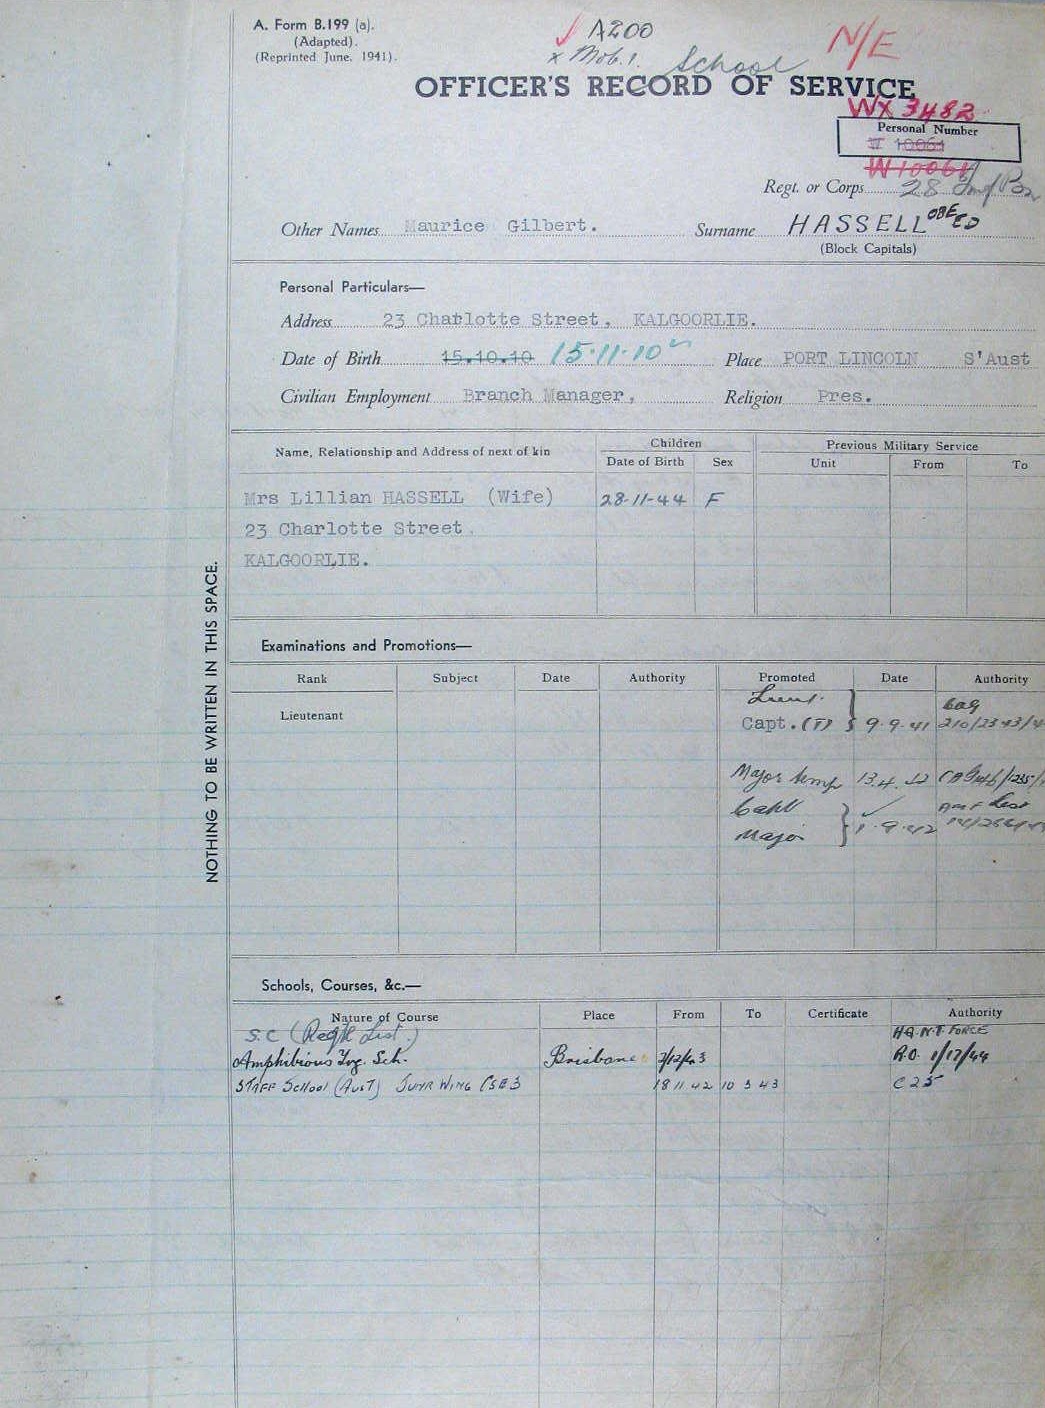 A. Form B.199 (a).
(Adapted).
(Reprinted June, 1941).
A200
x Mob. 1. School
N/E
OFFICER'S RECORD OF SERVICE
WX 3482
Personal Number
W 10061
W10061
Regt. or Corps 28 Inf Bn
Other Names Maurice Gilbert. Surname HASSELL OBE ED
(Block Capitals)
Personal Particulars—
Address 23 Charlotte Street, KALGOORLIE.
Date of Birth 15.10.10 15.11.10 Place PORT LINCOLN S'Aust
Civilian Employment Branch Manager, Religion Pres.
Name, Relationship and Address of next of kin Children Previous Military Service
Date of Birth Sex Unit From To
Mrs Lillian HASSELL (Wife) 28-11-44 F
23 Charlotte Street
KALGOORLIE.
NOTHING TO BE WRITTEN IN THIS SPACE.
Examinations and Promotions—
Rank Subject Date Authority Promoted Date Authority
Lieutenant Lieut.
Capt.(T) 9.9.41
Major temp 13.4.42
Capt
Major 1.9.42
Schools, Courses, &c.—
Nature of Course Place From To Certificate Authority
S.C (Regtl List.) HQ. N.T. FORCE
Amphibious Trg. Sch. Brisbane 7/12/43 R.O. 1/17/44
STAFF School (AUST) JUNR WING CSE 3 18 11 42 10 3 43 C25